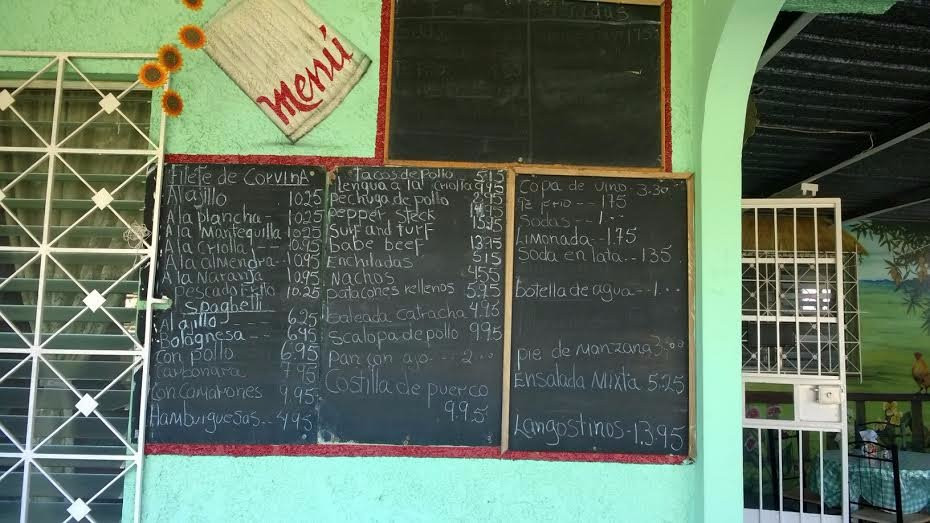 Menú
Filete de Corvina
Al ajillo 10.25
A la plancha - 10.25
A la Mantequilla 10.25
A la criolla -- 10.95
A la almendra - 10.95
A la Naranja 10.95
Pescado frito 10.25
Spaghetti
Al ajillo 6.25
Bolognesa -- 6.95
Con pollo 6.95
Carbonara 7.95
Con Camarones 9.95
Hamburguesas.. 4.95
Tacos de pollo 5.15
Lengua a la criolla 9.95
Pechuga de pollo 8.95
pepper steck
Surf and turf
Babe beef 13.95
Enchiladas 5.15
Nachos 4.55
patacones rellenos 5.95
baleada catracha 4.95
Escalopa de pollo 9.95
Pan con ajo --- 2.00
Costilla de puerco
9.95
Copa de vino - 3.30
Te frio --- 1.75
Sodas -- 1..
Limonada -- 1.75
Soda en lata.. 1.35
botella de agua --- 1..
pie de Manzana 3.00
Ensalada Mixta 5.25
Langostinos - 13.95